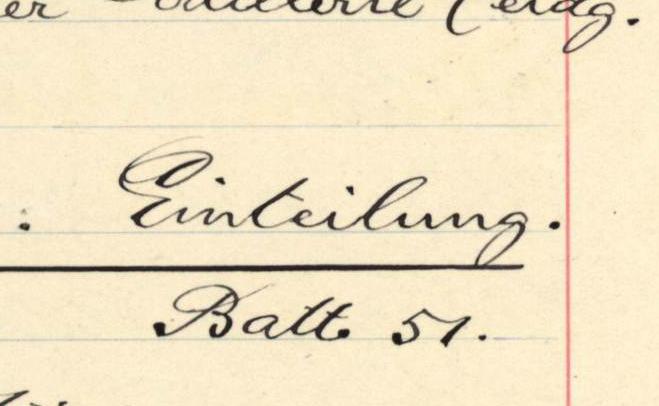 er (eidg.
. Einteilung.
Batt. 51.